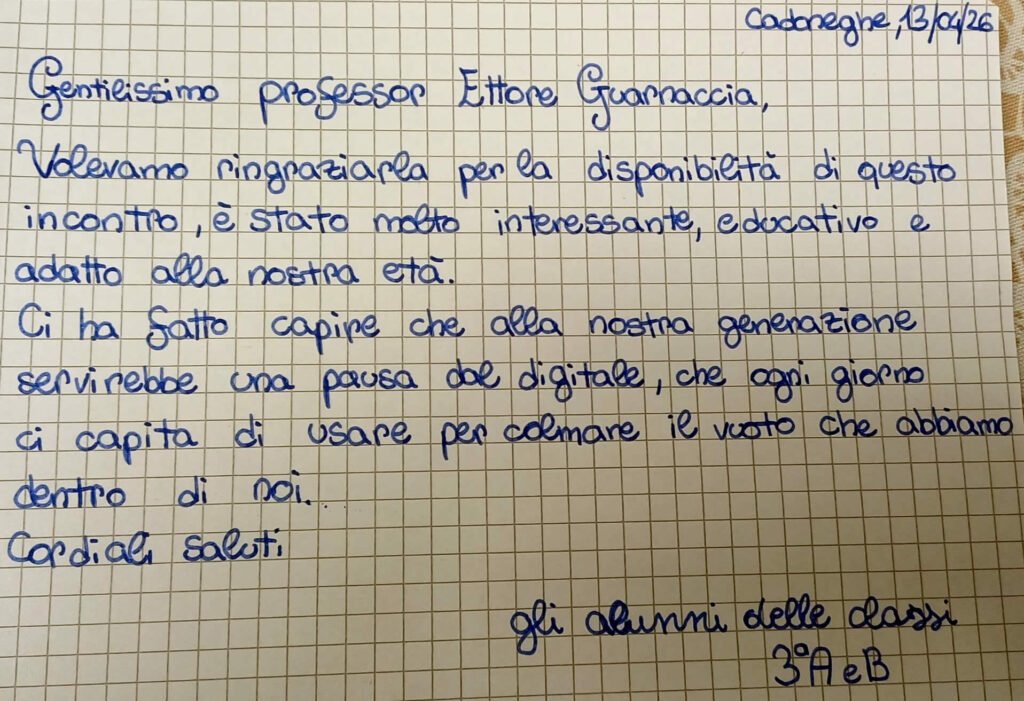 Cadoneghe, 13/04/26
Gentilissimo professor Ettore Guarnaccia,
Volevamo ringraziarla per la disponibilità di questo
incontro, è stato molto interessante, educativo e
adatto alla nostra età.
Ci ha fatto capire che alla nostra generazione
servirebbe una pausa dal digitale, che ogni giorno
ci capita di usare per colmare il vuoto che abbiamo
dentro di noi.
Cordiali saluti
gli alunni delle classi
3°A e B